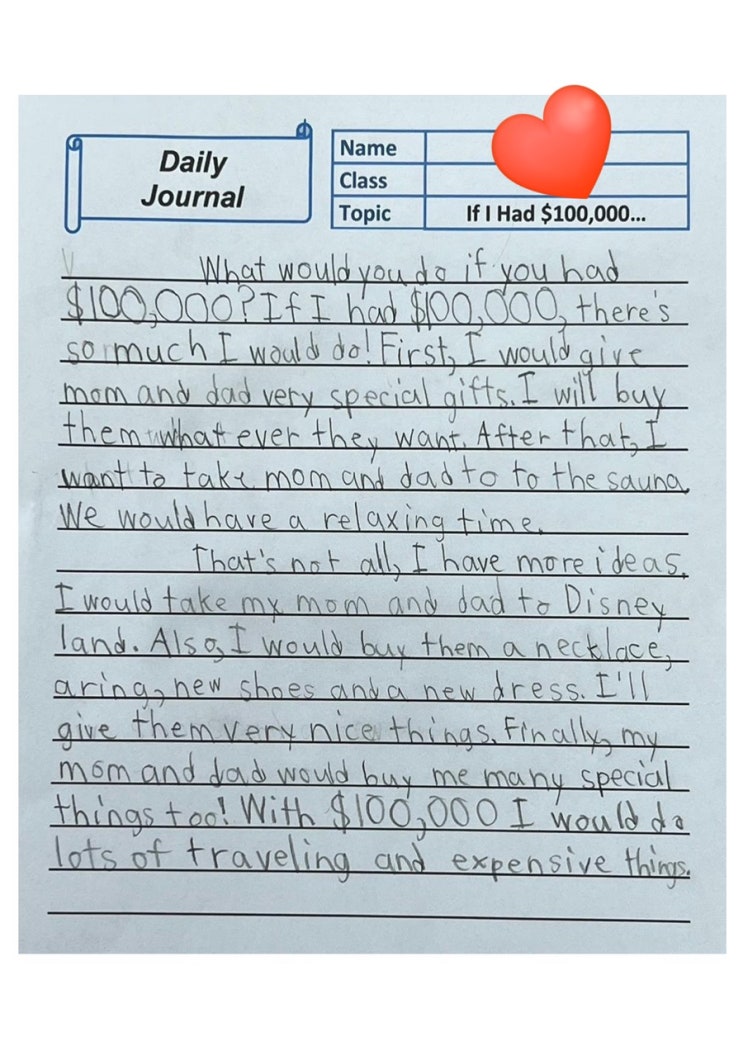 Daily
Journal
Name
Class
Topic
If I Had $100,000...
What would you do if you had
$100,000? If I had $100,000, there's
so much I would do! First, I would give
mom and dad very special gifts. I will buy
them what ever they want. After that, I
want to take mom and dad to to the sauna.
We would have a relaxing time.
That's not all, I have more ideas.
I would take my mom and dad to Disney
land. Also, I would buy them a necklace,
a ring, new shoes and a new dress. I'll
give them very nice things. Finally, my
mom and dad would buy me many special
things too! With $100,000 I would do
lots of traveling and expensive things.